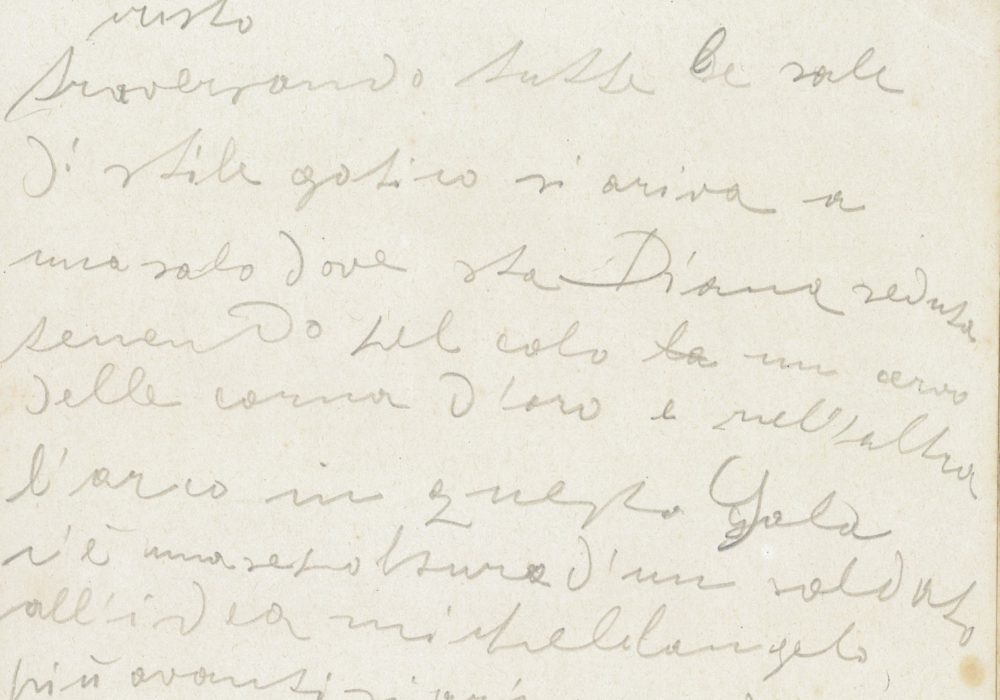 visto
traversando tutte le sale
di stile gotico si ariva a
una sala dove sta Diana seduta
tenendo pel colo un cervo
delle corna d'oro e nell'altra
l'arco in questa Sala
c'è una scoltura d'un soldato
all'idea michellangelo
più avanti si